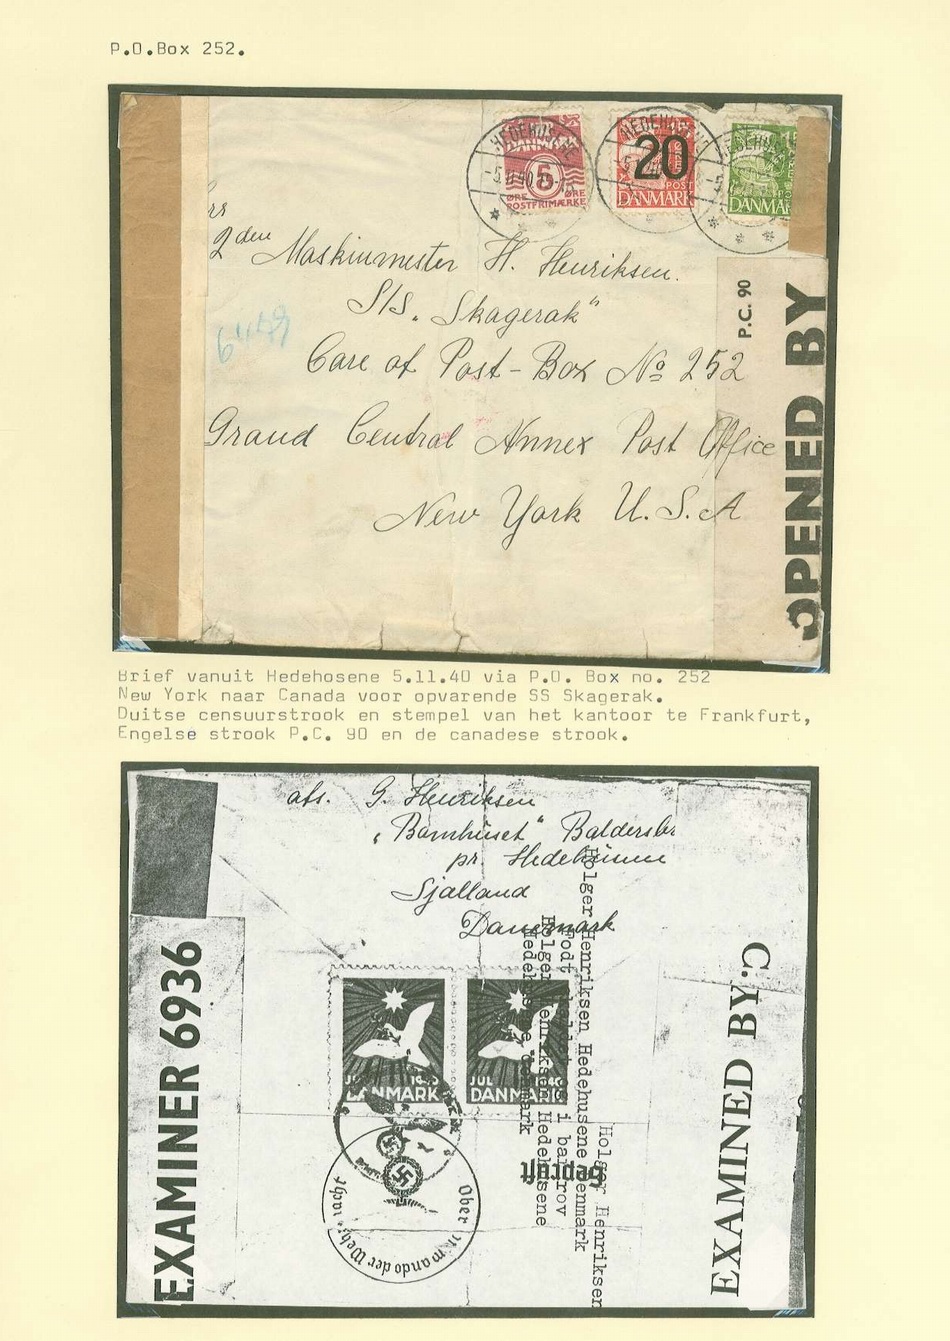 P.O.Box 252.
HEDEHUSENE
-5.11.40
DANMARK
5
ØRE ØRE
POSTFRIMÆRKE
HEDEHUSENE
20
POST
DANMARK
DANMARK
2den Maskinmester H. Henriksen.
S/S. „Skagerak"
Care of Post-Box No 252
Grand Central Annex Post Office
New York U.S.A
6449
P.C. 90
OPENED BY
Brief vanuit Hedehosene 5.11.40 via P.O. Box no. 252
New York naar Canada voor opvarende SS Skagerak.
Duitse censuurstrook en stempel van het kantoor te Frankfurt,
Engelse strook P.C. 90 en de canadese strook.
afs. G. Henriksen
„Barnhuset" Baldersbr
pr. Hedehusene
Sjælland
Danemark
EXAMINER 6936
JUL 1940
DANMARK
JUL 1940
DANMARK
Holger Henriksen
Holger Henriksen Hedehusene Denmark
Holger Henriksen Hedehusene
Hedehusene denmark
Geprüft
Ober mando der Wehrmacht
EXAMINED BY C.